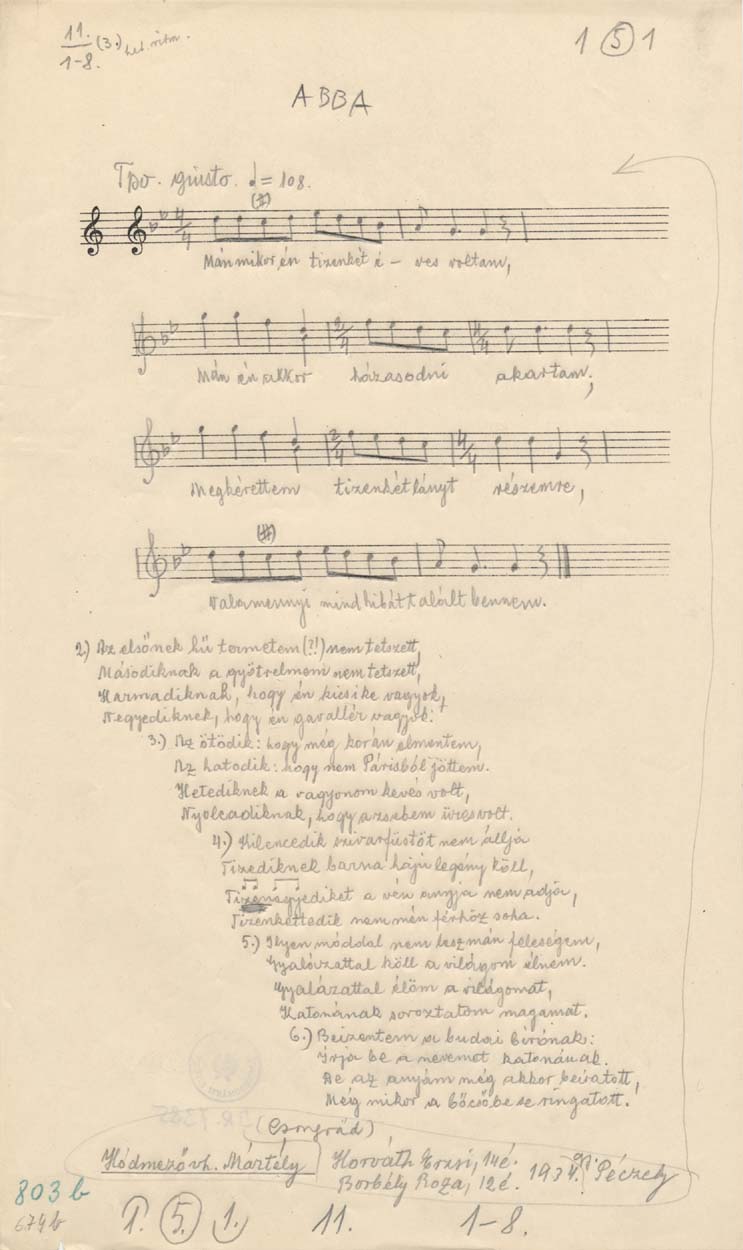 11. (3.)
1-8.
1 (5) 1
ABBA
Tpo. giusto. ♩= 108.
(#)
Mán mikor én tizenkét é - ves voltam,
Mán én akkor házasodni akartam;
Megkérettem tizenkét lányt részemre,
(#)
Valamennyi mind hibát talált bennem.
2.) Az elsőnek hű termetem (?!) nem tetszett,
Másodiknak a gyötrelmem nem tetszett,
Harmadiknak, hogy én kicsike vagyok,
Negyediknek, hogy én gavallér vagyok.
3.) Az ötödik: hogy még korán elmentem,
Az hatodik: hogy nem Párisból jöttem.
Hetediknek a vagyonom kevés volt,
Nyolcadiknak, hogy a zsebem üres volt.
4.) Kilencedik szivarfüstöt nem állja
Tizediknek barna hajú legény köll,
a vén anyja nem adja,
Tizenkettedik nem mén férhöz soha.
5.) Ilyen móddal nem lesz mán feleségem,
Gyalázattal köll a világom élnem.
Gyalázattal élöm a világomat,
Katonának soroztatom magamat.
6.) Beizentem a budai bírónak:
Írja be a nevemet katonának.
De az anyám még akkor beiratott,
Még mikor a bőcsőbe se ringatott.
(Csongrád)
Hódmezővh. Mártély
Horváth Erzsi, 14é.
Borbély Roza, 12é.
Péczely
803 b
674 b
I. (5.) 1. 11. 1-8.